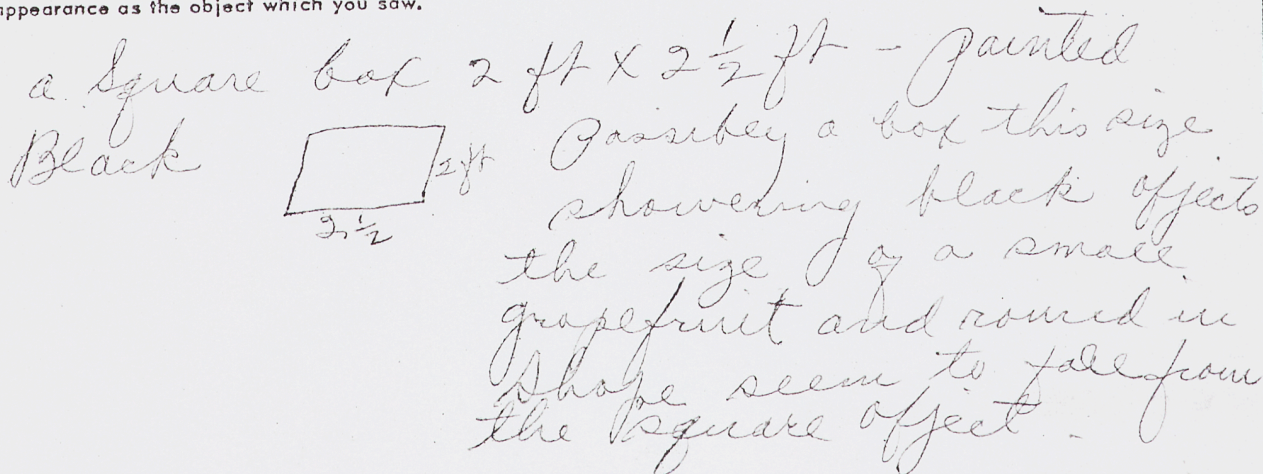 appearance as the object which you saw.
a Square box 2 ft x 2 1/2 ft - painted
Black
2 ft
2 1/2
Possibley a box this size
showering black objects
the size of a small
grapefruit and round in
shape seem to fall from
the square object.